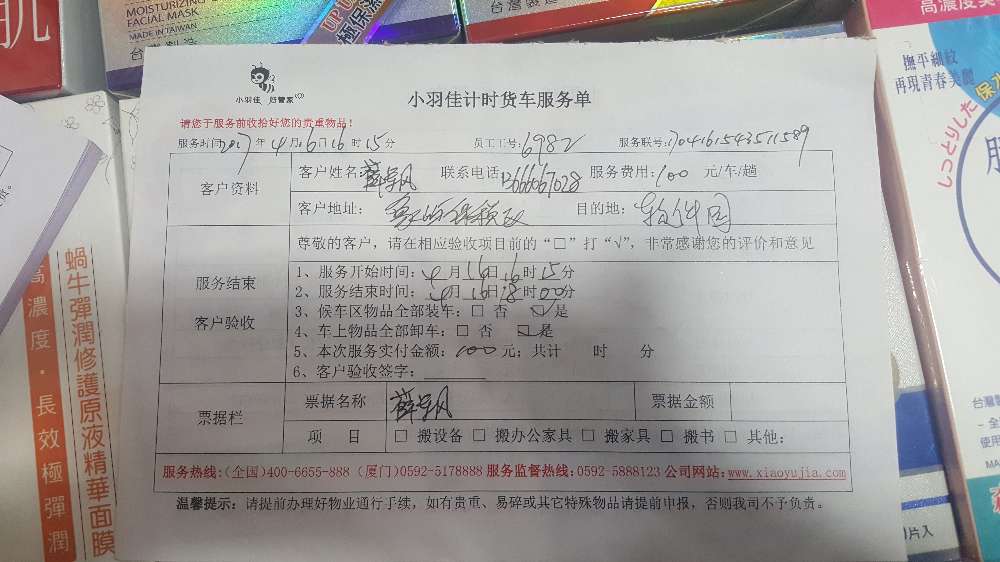 肌
MOISTURIZING
FACIAL MASK
MADE IN TAIWAN
台灣製造
極保濕
高濃度美
撫平細紋
再現青春美麗
しっとりした
保水
小羽佳 好管家
小羽佳计时货车服务单
请您于服务前收拾好您的贵重物品!
服务时间:2017年4月16日16时15分 员工工号:6982 服务联号:704161543511589
客户资料
客户姓名: 联系电话:13666067028 服务费用:100 元/车/趟
客户地址: 目的地:软件园
服务结束
客户验收
尊敬的客户，请在相应验收项目前的“□”打“√”，非常感谢您的评价和意见
1、服务开始时间:4月16日16时15分
2、服务结束时间:4月16日18时00分
3、候车区物品全部装车:□ 否 ☑是
4、车上物品全部卸车:□ 否 ☑是
5、本次服务实付金额:100元;共计 时 分
6、客户验收签字:
票据栏
票据名称 票据金额
项 目 □ 搬设备 □ 搬办公家具 □ 搬家具 □ 搬书 □ 其他:
服务热线:(全国)400-6655-888 (厦门)0592-5178888 服务监督热线:0592-5888123 公司网站:www.xiaoyujia.com
温馨提示:请提前办理好物业通行手续，如有贵重、易碎或其它特殊物品请提前申报，否则我司不予负责。
蝸牛彈潤修護原液精華面膜
高濃度·長效極彈潤
台灣製
片入